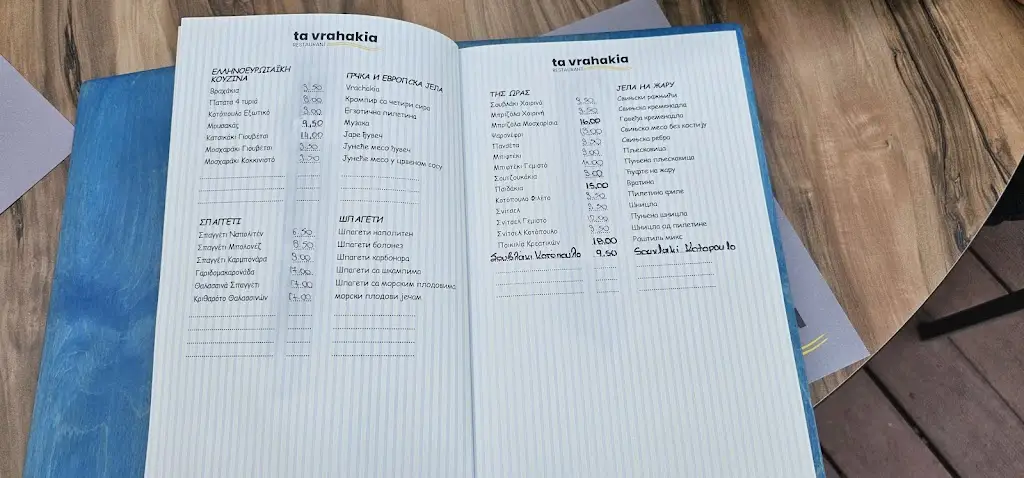 ta vrahakia
RESTAURANT
ΕΛΛΗΝΟΕΥΡΩΠΑΪΚΗ ΚΟΥΖΙΝΑ
Βραχάκια 9.50
Πατάτα 4 τυριά 8.00
Κοτόπουλο Εξωτικό 9.00
Μουσακάς 9,50
Κατσικάκι Γιουβέτσι 14,00
Μοσχαράκι Γιουβέτσι 9.50
Μοσχαράκι Κοκκινιστό 9.50
ГРЧКА И ЕВРОПСКА ЈЕЛА
Vrachakia
Кромпир са четири сира
Егзотична пилетина
Музака
Јаре ђувеч
Јунеће месо ђувеч
Јунеће месо у црвеном сосу
ΣΠΑΓΓΕΤΙ
Σπαγγέτι Ναπολιτέν 6.50
Σπαγγέτι Μπολονέζ 8.50
Σπαγγέτι Καρμπονάρα 9.00
Γαριδομακαρονάδα 17.00
Θαλασσινά Σπαγγέτι 17.00
Κριθαρότο Θαλασσινών 17.00
ШПАГЕТИ
Шпагети наполитен
Шпагети болонез
Шпагети карбонара
Шпагети са шкампима
Шпагети са морским плодовима
морски плодови јечам
ta vrahakia
RESTAURANT
ΤΗΣ ΩΡΑΣ
Σουβλάκι Χοιρινό 9.50
Μπριζόλα Χοιρινή 9.50
Μπριζόλα Μοσχαρίσια 16.00
Ψαρονέφρι 13.00
Πανσέτα 9.50
Μπιφτέκι 9.00
Μπιφτέκι Γεμιστό 11.00
Σουτζουκάκια 9.00
Παϊδάκια 15.00
Κοτόπουλο Φιλέτο 9.50
Σνίτσελ 9.50
Σνίτσελ Γεμιστό 12.00
Σνίτσελ Κοτόπουλο 9.50
Ποικιλία Κρεατικών 18.00
Σουβλακι Κοτοπουλο 9.50
ЈЕЛА НА ЖАРУ
Свињски ражњићи
Свињска кременадла
Говеђа кременадла
Свињско месо без костију
Свињска ребра
Пљескавица
Пуњена пљескавица
Ћуфте на жару
Вратина
Пилетина филе
Шницла
Пуњена шницла
Шницла од пилетине
Роштиљ микс
Souvlaki Kotopoulo